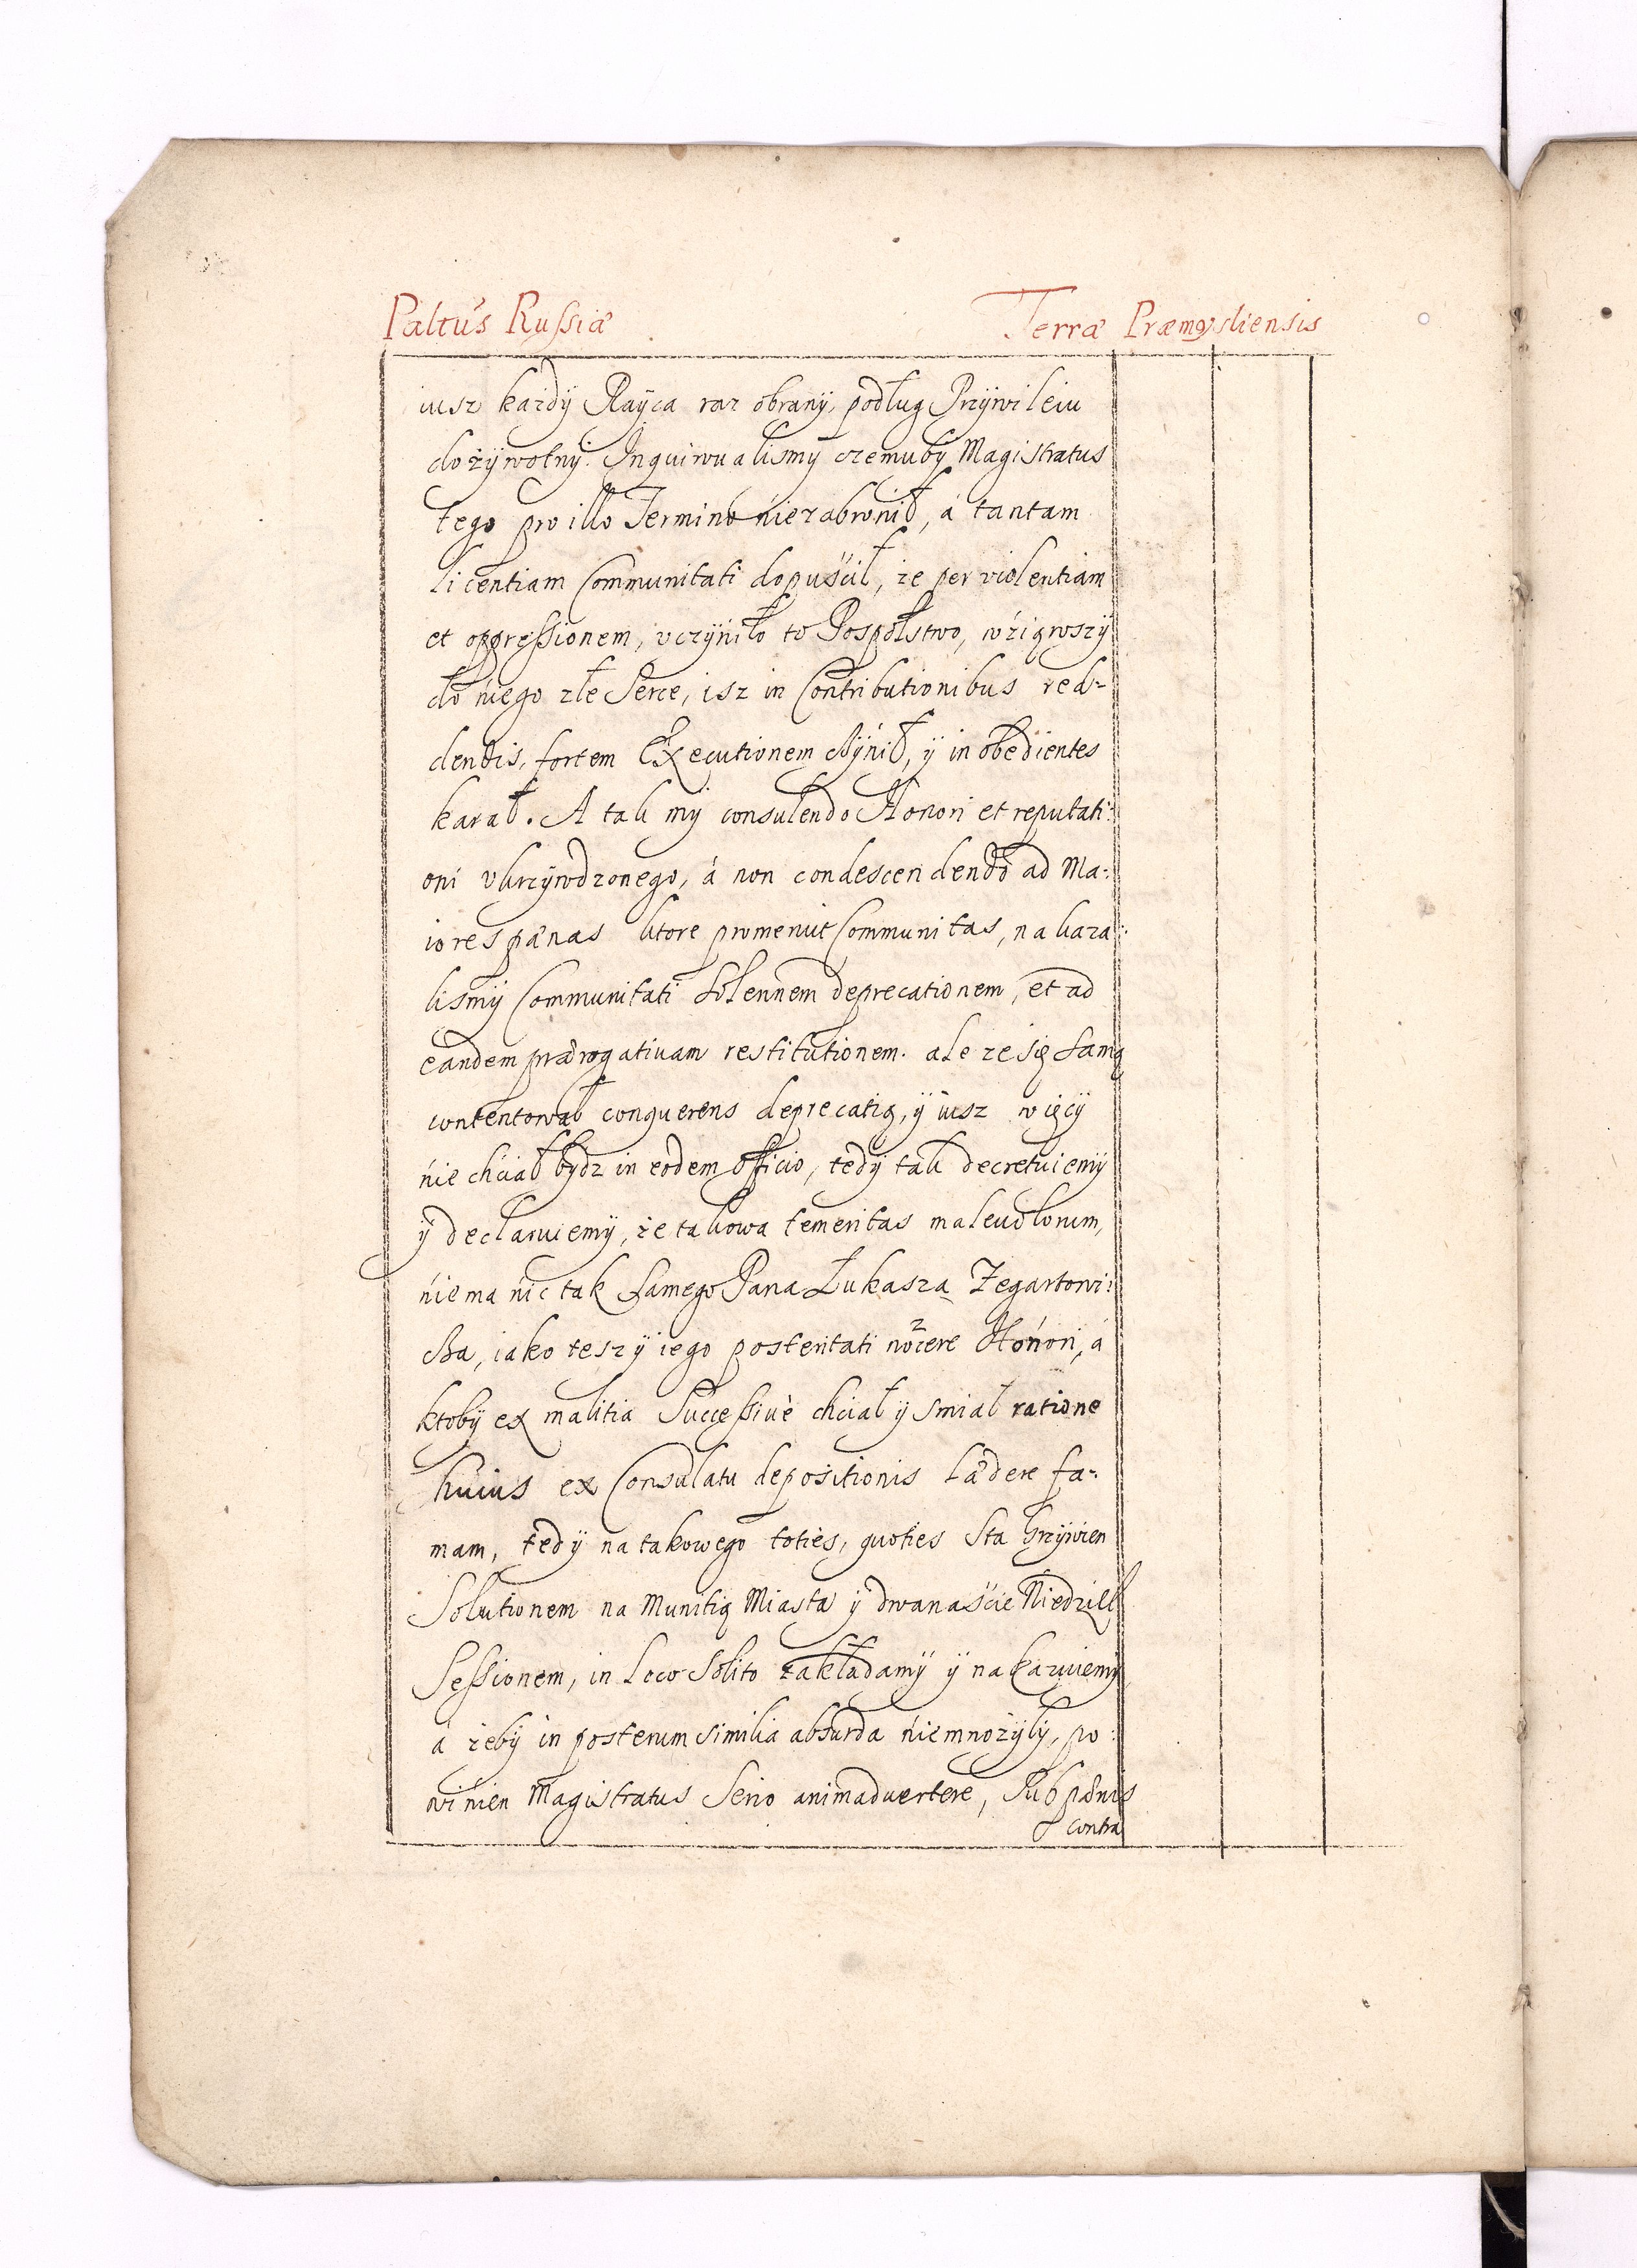 Paltus Russiæ Terræ Præmysliensis
iusz każdÿ Raÿca raz obranÿ, podług Przÿwileiu
dożÿwotnÿ. Inquirowalismÿ czemubÿ Magistratus
tego pro illo Termino niezabronił, á tantam
licentiam Communitati dopuścił, że per violentiam
et oppressionem, vczÿniło to Pospólstwo, wźiąwszÿ
do niego złe Serce, isz in Contributionibus red-
dendis, fortem Executionem czÿnił, ÿ inobedientes
karał. A tak mÿ consulendo Honori et reputati:
oni vkrzÿwdzonego, á non condescendendo ad Ma:
iores pænas ktore promeruit Communitas, nakaza:
lismÿ Communitati Solennem deprecationem, et ad
eandem prærogatiuam restitutionem. ale ze się Samą
contentował conquerens deprecatią, ÿ iusz więcÿ
nie chciał bÿdz in eodem officio, tedÿ tak decretuiemÿ
ÿ declaruiemÿ, że takowa temeritas maleuolorum,
niema nic tak Samego Pana Łukasza Zegartowi:
cza, iako tesz ÿ iego posteritati nocere Honori, á
ktobÿ ex malitia Successiuè chciał ÿ smiał ratione
huius ex Consulatu depositionis lædere fa-
mam, tedÿ na takowego toties, quoties Sta Grzÿwien
Solutionem na Munitią Miasta ÿ dwanaście Niedziel
Sessionem, in Loco Solito zakładamÿ ÿ nakazuiemÿ
á żebÿ in posterum similia absurda niemnożÿłÿ, po:
winien Magistratus Serio animaduertere, Sub pænis
contra